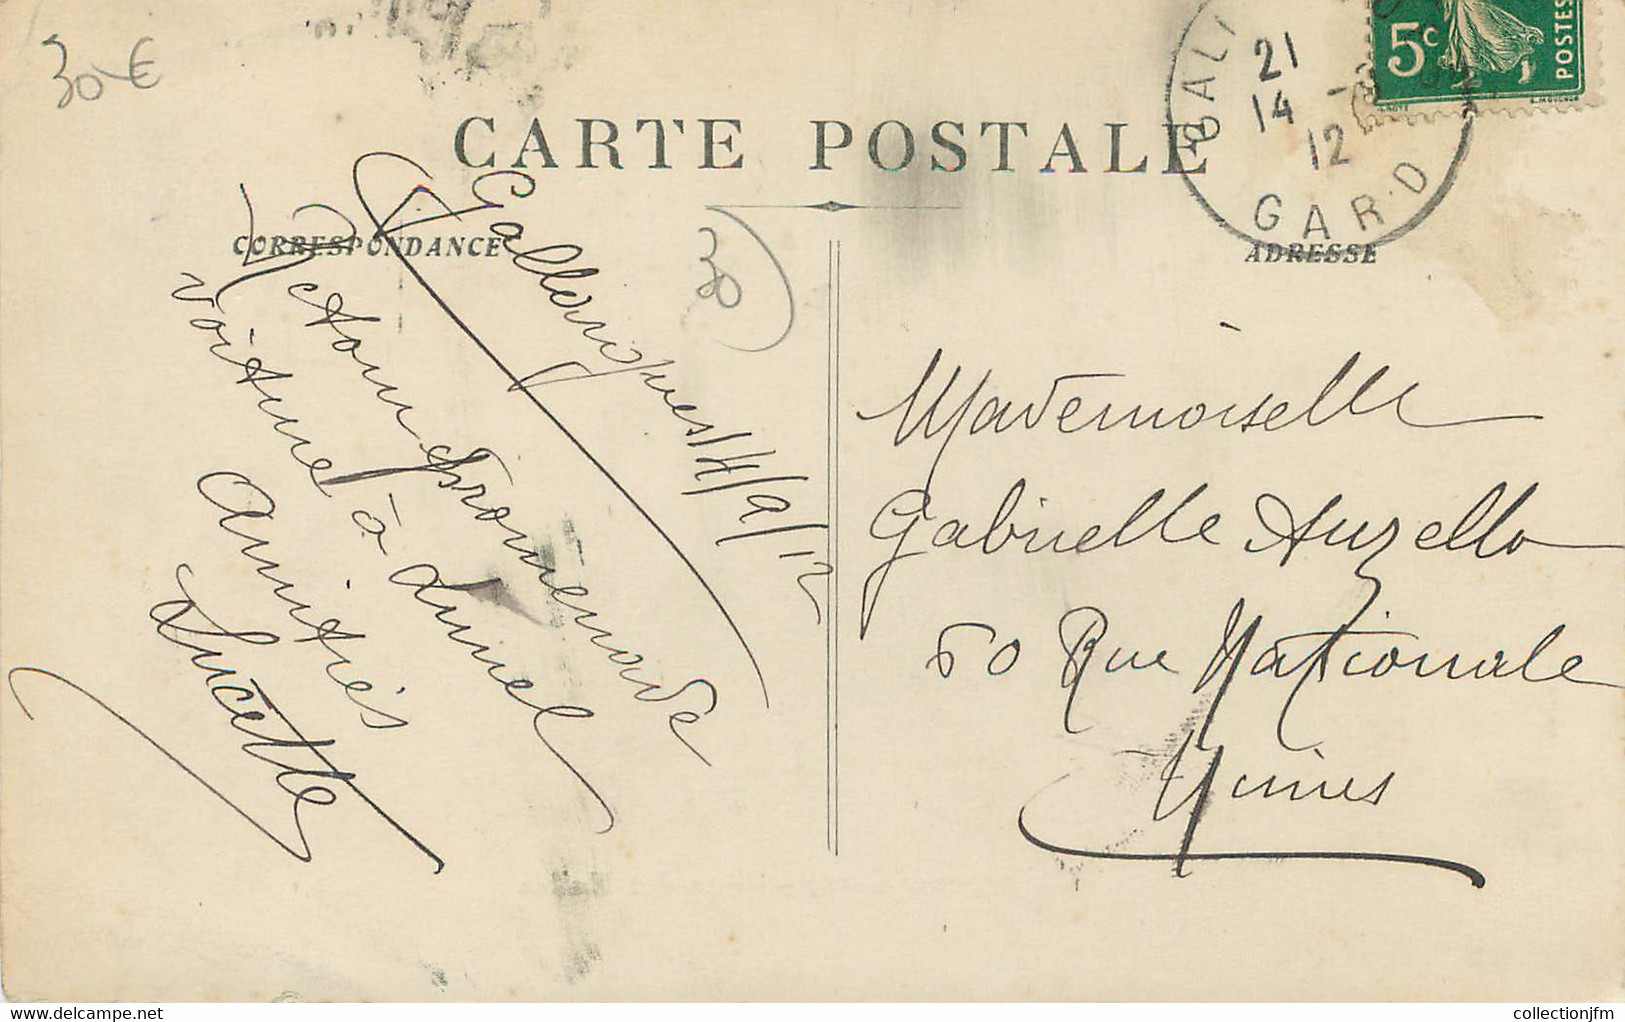 30 €
CARTE POSTALE
CORRESPONDANCE
ADRESSE
GALL
GARD
21
14 - 9
12
5c
POSTES
30
Gallargues 14/9/12
Retour promenade
voiture à Lunel
Amitiés
Lucette
Mademoiselle
Gabrielle Auzello
60 Rue Nationale
Nimes
www.delcampe.net
collectionjfm